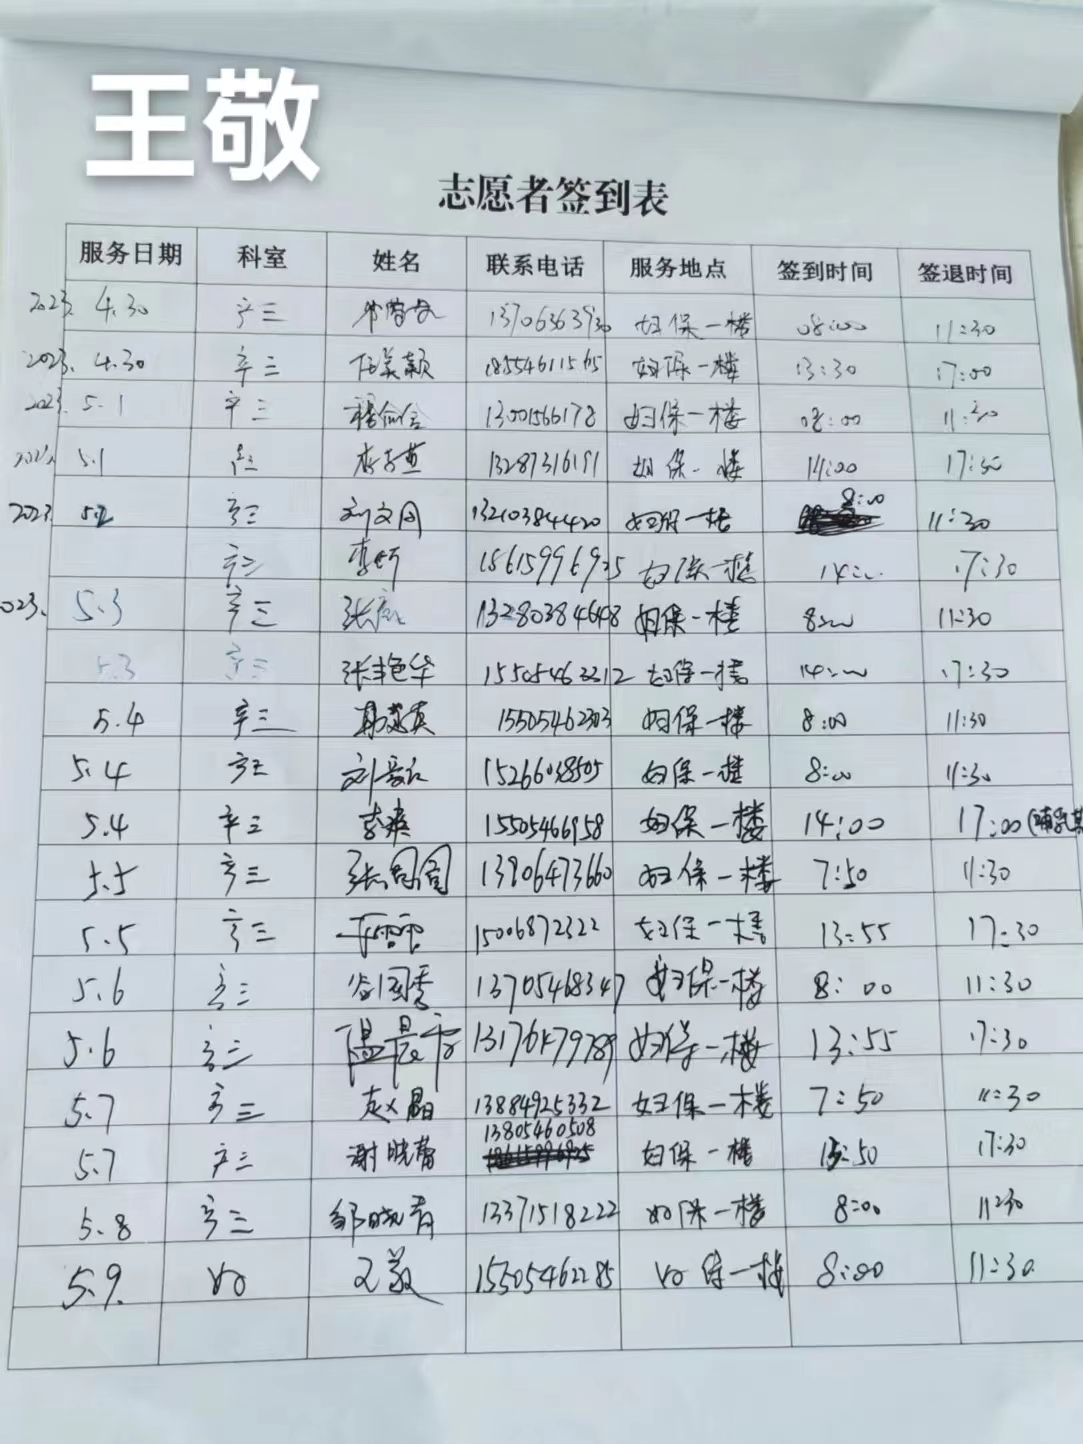 王敬
志愿者签到表
服务日期 科室 姓名 联系电话 服务地点 签到时间 签退时间
2023. 4.30 产三 13706363930 妇保一楼 08:00 11:30
2023. 4.30 产三 任美颖 18554611565 妇保一楼 13:30 17:00
2023. 5.1 产三 13001566178 妇保一楼 08:00 11:30
5.1 产三 13287316191 妇保一楼 14:00 17:30
2023 5.2 产三 刘文同 13210384420 妇保一楼 8:00 11:30
产三 李妍 15615996925 妇保一楼 14:00 17:30
2023. 5.3 产三 13280384648 妇保一楼 8:00 11:30
5.3 产三 张艳华 15505463312 妇保一楼 14:00 17:30
5.4 产三 15505462303 妇保一楼 8:00 11:30
5.4 产三 15266038505 妇保一楼 8:00 11:30
5.4 产三 15505466958 妇保一楼 14:00 17:00(哺乳其
5.5 产三 张圆圆 13806473660 妇保一楼 7:50 11:30
5.5 产三 15006872322 妇保一楼 13:55 17:30
5.6 产三 谷国秀 13705468347 妇保一楼 8:00 11:30
5.6 产三 13176479789 妇保一楼 13:55 17:30
5.7 产三 赵晶 13884925332 妇保一楼 7:50 11:30
5.7 产三 谢晓蕾 13805460508 妇保一楼 13:50 17:30
5.8 产三 邹晓青 13371518222 妇保一楼 8:00 11:30
5.9. 妇 王敬 15505462285 妇保一楼 8:00 11:30